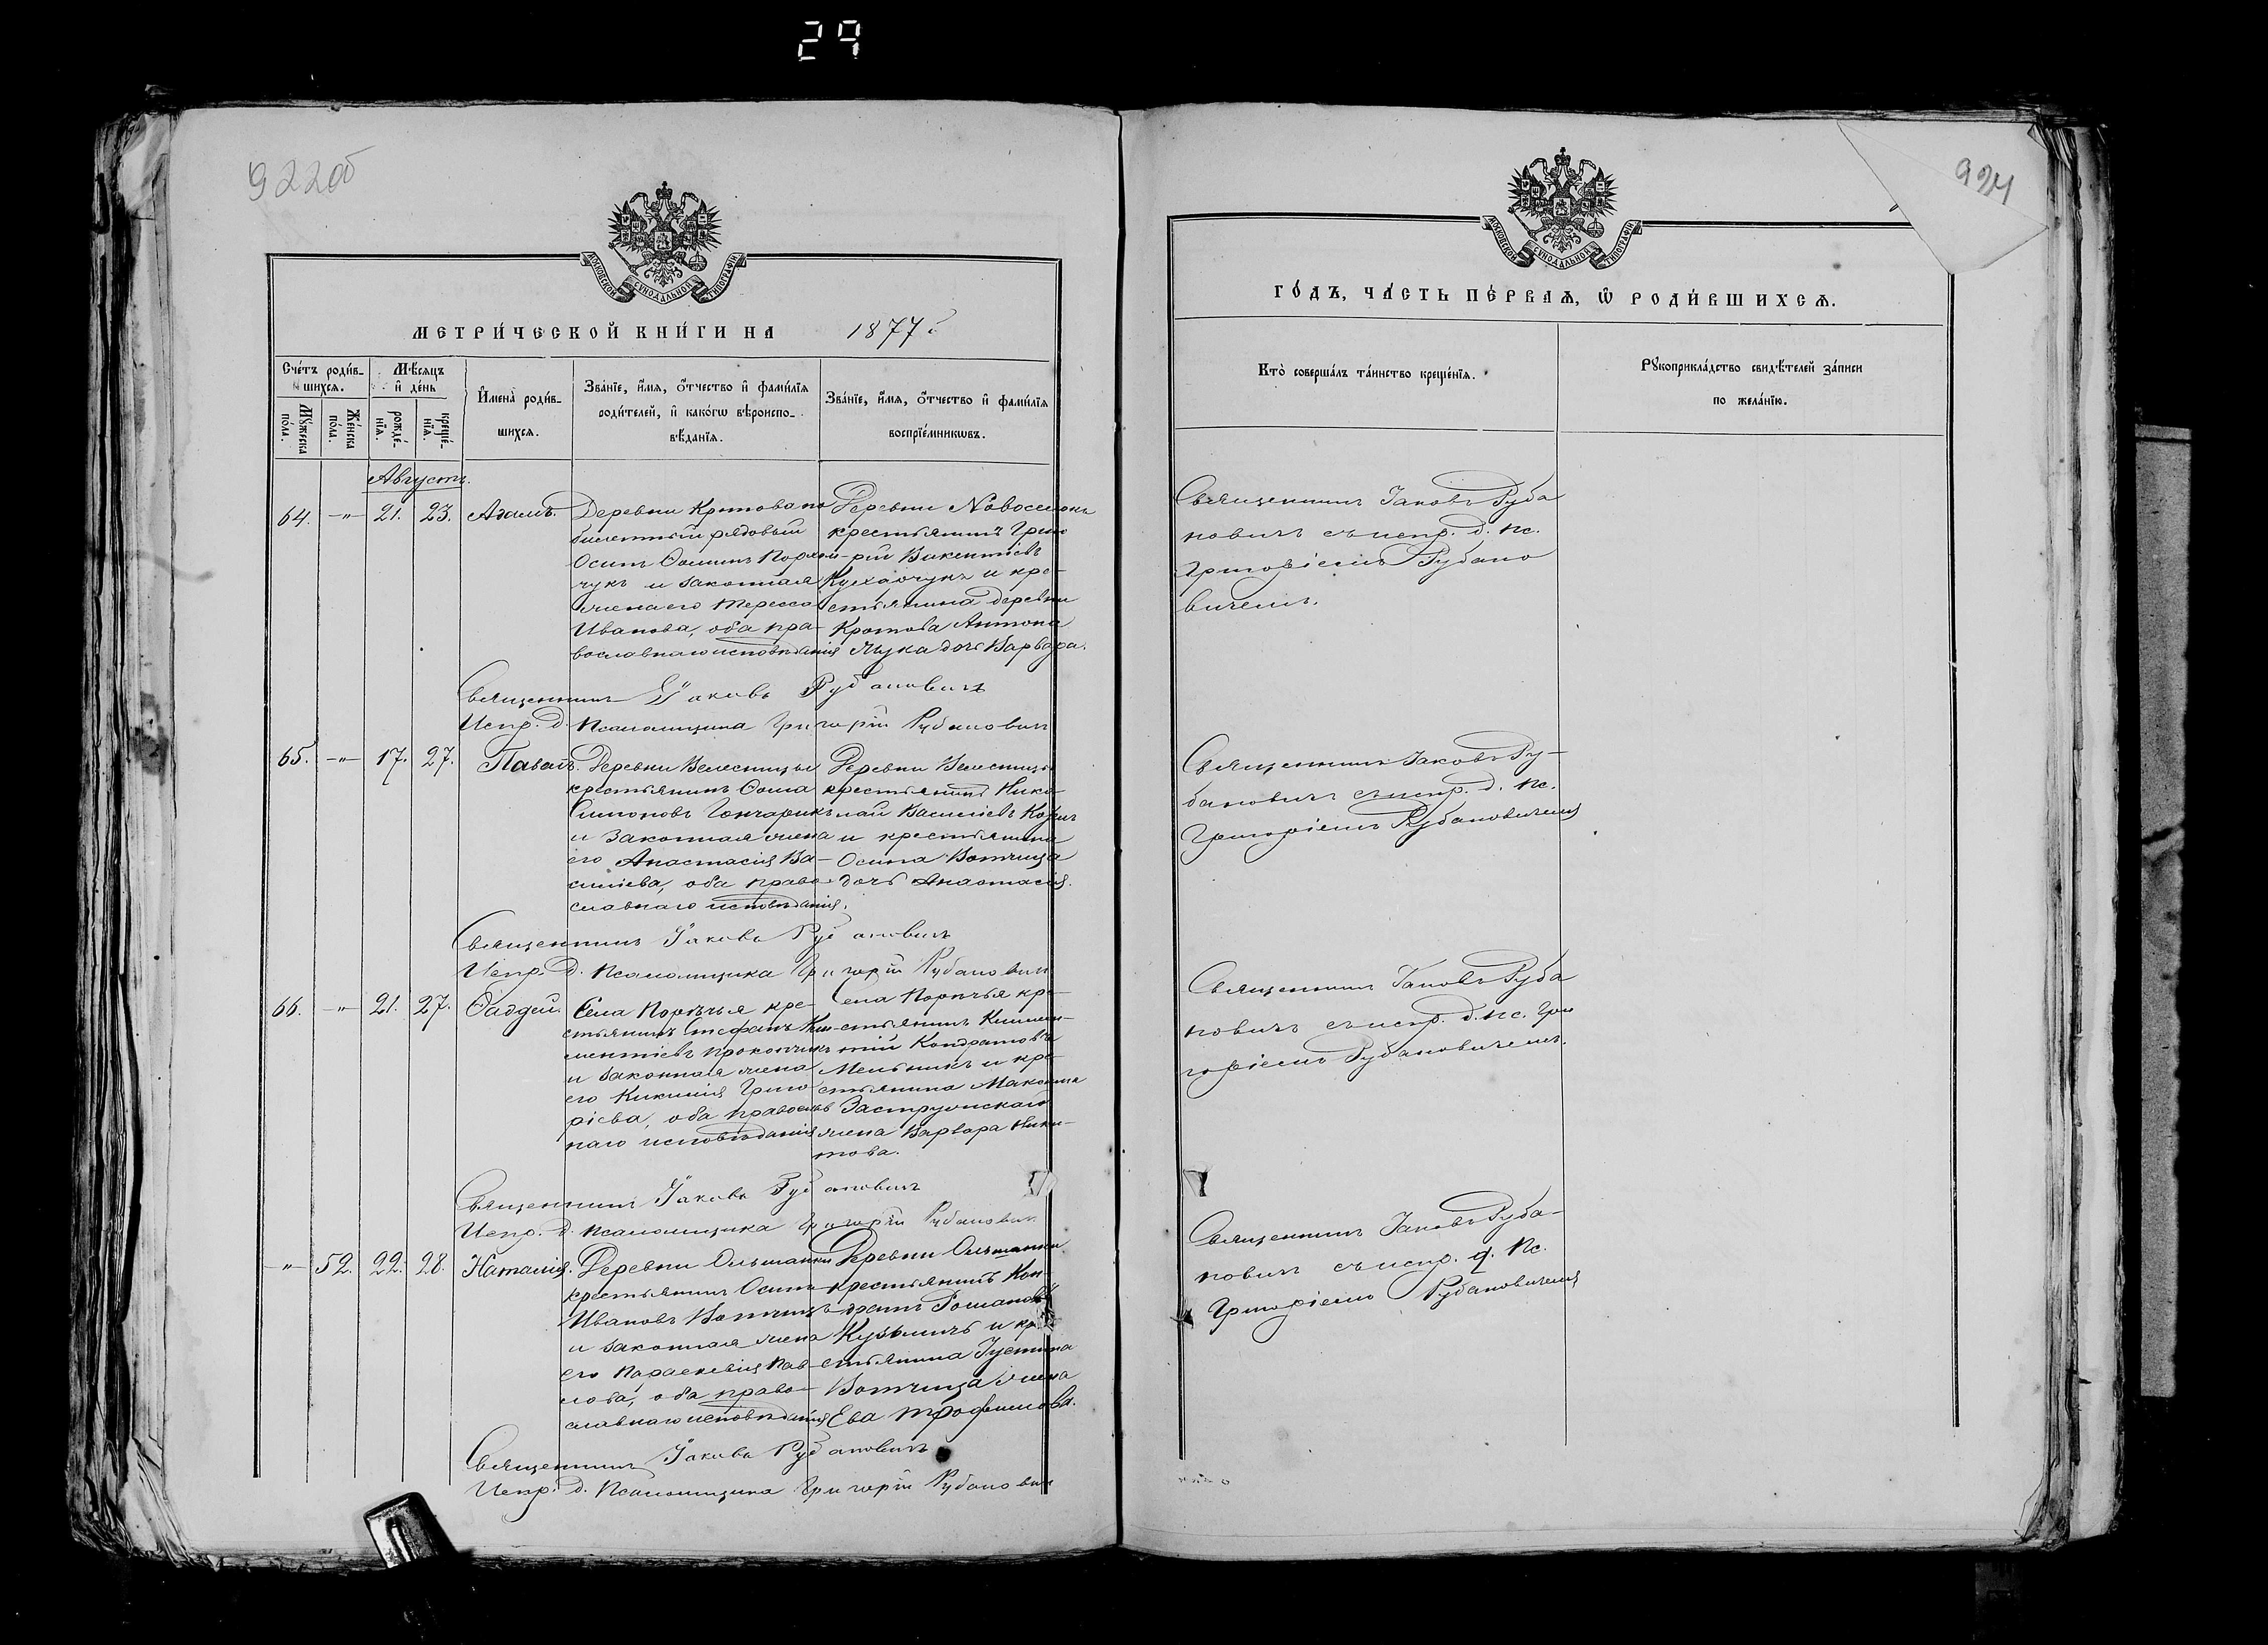 29
922об
924
МОСКОВСКОЙ СѴНОДАЛЬНОЙ ТИПОГРАФІИ
МЕТРИ́ЧЕСКОЙ КНИ́ГИ НА 1877 г.
Сче́тъ роди́в-
шихсѧ.
Мꙋ́жеска по́ла.
Же́нска по́ла.
Мѣ́сѧцъ и҆ де́нь
рожде́-
нїѧ.
креще́-
нїѧ.
И҆мена̀ роди́в-
шихсѧ.
Зва́нїе, и҆́мѧ, ѻ҆́тчество и҆ фами́лїѧ
роди́телей, и҆ како́гѡ вѣроиспо-
вѣ́данїѧ.
Зва́нїе, и҆́мѧ, ѻ҆́тчество и҆ фами́лїѧ
воспрїе́мникѡвъ.
Августъ.
64. -"- 21. 23. Адамъ.
Деревни Кротова
билетный рядовый
Осипъ Ѳоминъ
чукъ и законная
жена его Тересса
Иванова, оба пра-
вославнаго исповѣданія
Деревни Новоселокъ
крестьянинъ Григо
рій Викентіевъ
Кухарчукъ и кре-
стьянина деревни
Кротова Антона
Жука дочь Варвара.
Священникъ Іаковъ Рубановичъ
Испр. д. Псаломщика Григорій Рубановичъ
65. -"- 17. 27. Павелъ.
Деревни Велесницы
крестьянинъ Ѳома
Симоновъ Гончарикъ
и законная жена
его Анастасія Ва-
силіева, оба право-
славнаго исповѣданія.
Деревни Велесницы
крестьянинъ Нико-
лай Василіевъ
и крестьянина
Осипа Вотчица
дочь Анастасія.
Священникъ Іаковъ Рубановичъ
Испр. д. Псаломщика Григорій Рубановичъ
66. -"- 21. 27. Ѳаддей.
Села Порѣчья кре-
стьянинъ Стефанъ Кли-
ментіевъ Прокопчикъ
и законная жена
его Кикилія Григо
рієва, оба православ
наго исповѣданія
Села Порѣчья кре-
стьянинъ Климен-
тій Кондратовъ
Мельникъ и кре-
стьянина Максима
Заструпскаго
жена Варвара Ники-
това.
Священникъ Іаковъ Рубановичъ
Испр. д. Псаломщика Григорій Рубановичъ
-"- 52. 22. 28. Наталія.
Деревни Ольшанки
крестьянинъ Осипъ
Ивановъ Вотчицъ
и законная жена
его Параскевія Пав-
лова, оба право-
славнаго исповѣданія
Деревни Ольшанки
крестьянинъ Кон-
дратъ Романовъ
Кузьмичъ и кре
стьянина Іустина
Вотчица жена
Ева Трофимова.
Священникъ Іаковъ Рубановичъ
Испр. д. Псаломщика Григорій Рубановичъ
МОСКОВСКОЙ СѴНОДАЛЬНОЙ ТИПОГРАФІИ
ГО́ДЪ, ЧА́СТЬ ПЕ́РВАѦ, Ѡ҆ РОДИ́ВШИХСѦ.
Кто̀ соверша́лъ та́инство креще́нїѧ.
Рꙋкоприкла́дство свидѣ́телей за́писи
по жела́нїю.
Священникъ Іаковъ Руба
новичъ съ испр. д. пс.
Григоріемъ Рубано
вичемъ.
Священникъ Іаковъ Ру-
бановичъ съ испр. д. пс.
Григоріемъ Рубановичемъ
Священникъ Іаковъ Руба
новичъ съ испр. д. пс. Гри
горіемъ Рубановичемъ.
Священникъ Іаковъ Руба-
новичъ съ испр. д. пс.
Григоріемъ Рубановичемъ